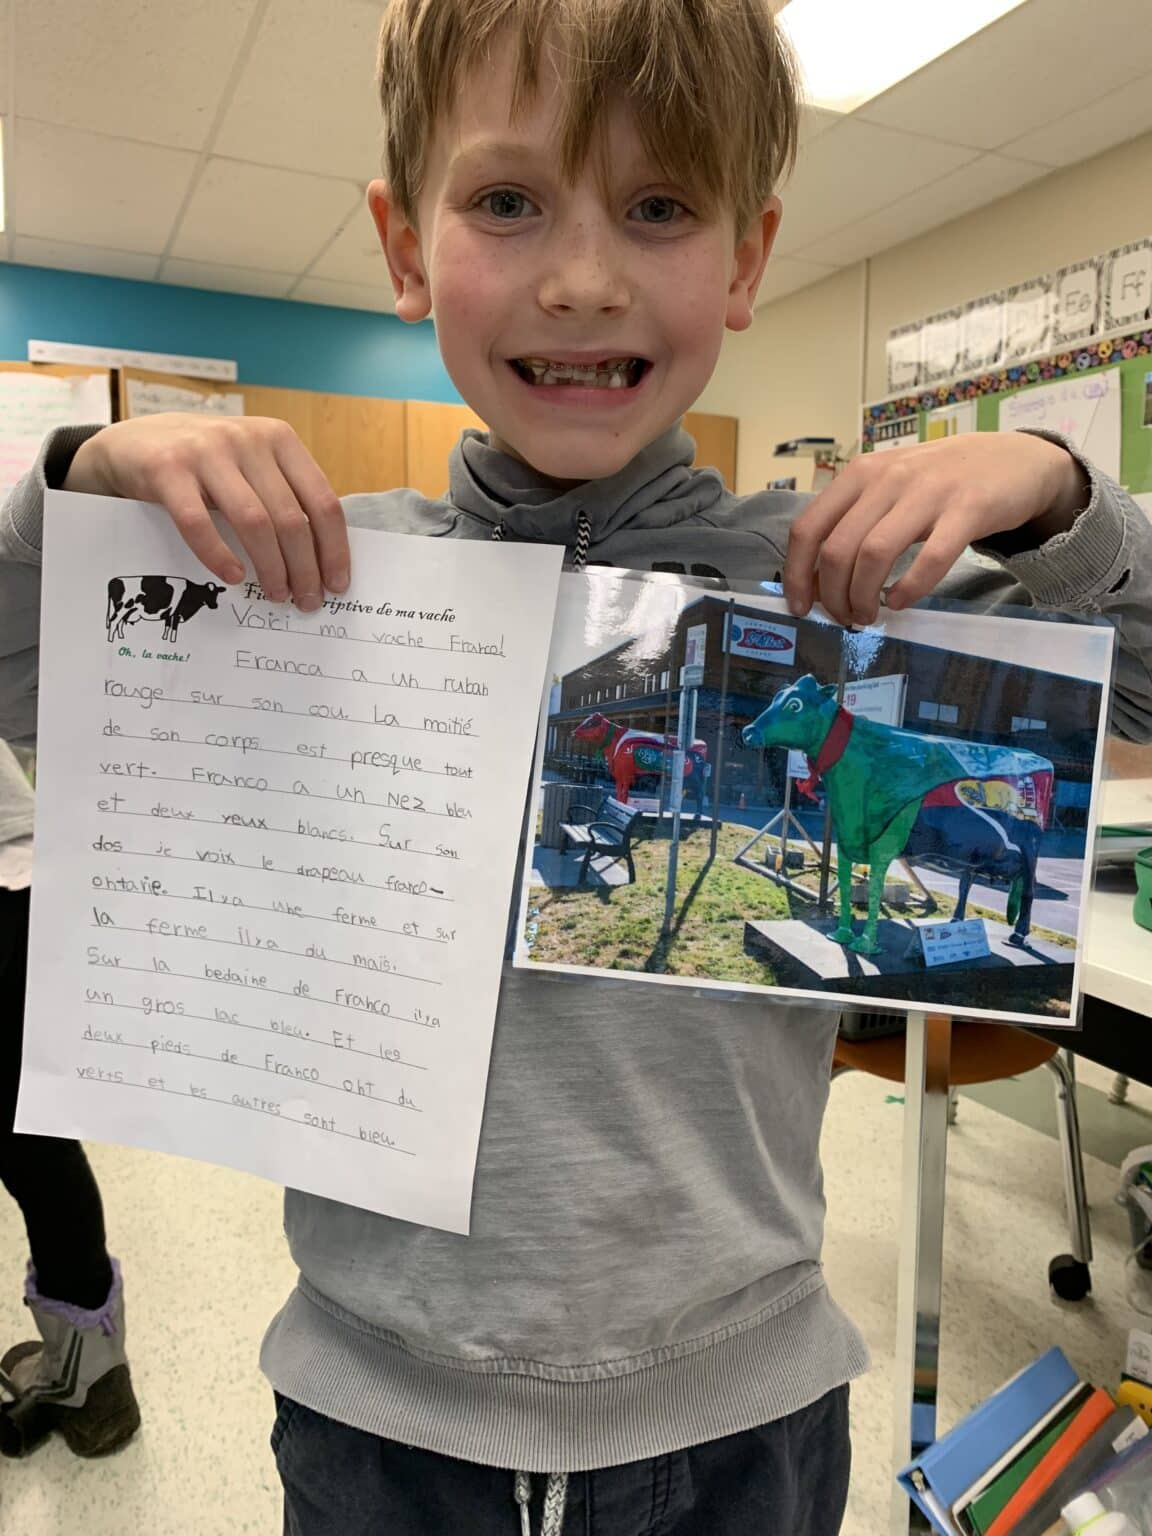 descriptive de ma vache
Oh, la vache!
Voici ma vache Franco!
Franca a un ruban
rouge sur son cou. La moitié
de son corps est presque tout
vert. Franco a un Nez bleu
et deux yeux blancs. Sur son
dos je voix le drapeau franco-
ontarie. Il ya une ferme et sur
la ferme il ya du mais.
Sur la bedaine de Franco il ya
un gros lac bleu. Et les
deux pieds de Franco ont du
verts et les autres sont bleu.
-19
Ee
Ff
TABLEAU